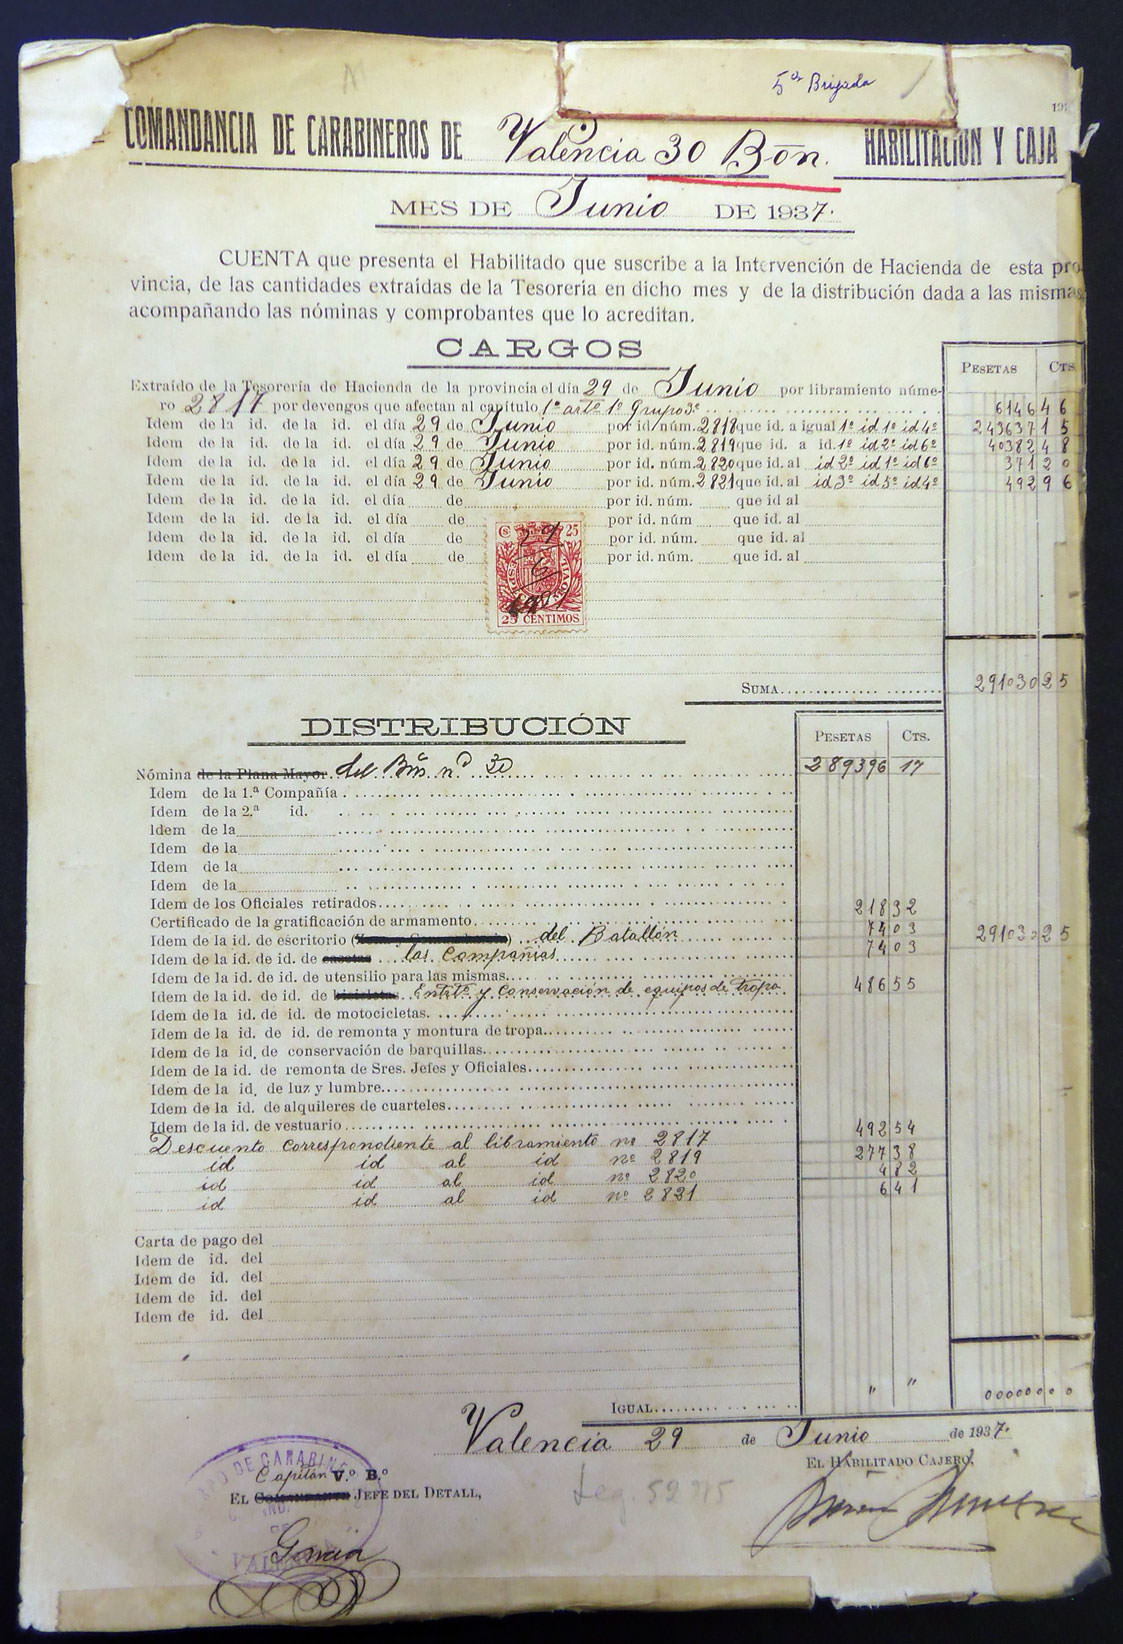 5ª Brigada
193
COMANDANCIA DE CARABINEROS DE Valencia 30 Bon. HABILITACION Y CAJA
MES DE Junio DE 1937.
CUENTA que presenta el Habilitado que suscribe a la Intervención de Hacienda de esta pro
vincia, de las cantidades extraídas de la Tesorería en dicho mes y de la distribución dada a las mismas
acompañando las nóminas y comprobantes que lo acreditan.
CARGOS
PESETAS CTS.
Extraído de la Tesorería de Hacienda de la provincia el día 29 de Junio por libramiento núme-
ro 2817 por devengos que afectan al capítulo 1º artº 1º Grupo 3º 6146 46
Idem de la id. de la id. el día 29 de Junio por id. núm. 2818 que id. a igual 1º id 1º id 4º 243637 15
Idem de la id. de la id. el día 29 de Junio por id. núm. 2819 que id. a id. 1º id 2º id 6º 40382 48
Idem de la id. de la id. el día 29 de Junio por id. núm. 2820 que id. al id 2º id 1º id 6º 371 20
Idem de la id. de la id. el día 29 de Junio por id. núm. 2821 que id. al id 3º id 5º id 4º 492 96
Idem de la id. de la id. el día de por id. núm. que id al
Idem de la id. de la id. el día de por id. núm que id. al
Idem de la id. de la id. el día de por id. núm. que id. al
Idem de la id. de la id. el día de por id. núm. que id. al
Cs 25
29
6
25 CENTIMOS
SUMA 291030 25
DISTRIBUCIÓN
PESETAS CTS.
Nómina de la Plana Mayor. del Bón. nº 30 289396 17
Idem de la 1.ª Compañía
Idem de la 2.ª id.
Idem de la
Idem de la
Idem de la
Idem de la
Idem de los Oficiales retirados
Certificado de la gratificación de armamento 218 32
Idem de la id. de escritorio ( ) del Batallón 74 03 291030 25
Idem de la id. de id. de las Compañias 74 03
Idem de la id. de id. de utensilio para las mismas
Idem de la id. de id. de bicicletas Entrtº y conservación de equipos de tropa 486 55
Idem de la id. de id. de motocicletas
Idem de la id. de id. de remonta y montura de tropa
Idem de la id. de conservación de barquillas
Idem de la id. de remonta de Sres. Jefes y Oficiales
Idem de la id. de luz y lumbre
Idem de la id. de alquileres de cuarteles
Idem de la id. de vestuario
Descuento correspondiente al libramiento nº 2817 492 54
id id al id nº 2819 277 38
id id al id nº 2820 4 82
id id al id nº 2821 6 41
Carta de pago del
Idem de id. del
Idem de id. del
Idem de id. del
Idem de id. del
IGUAL " " 000000 00
Valencia 29 de Junio de 1937.
EL HABILITADO CAJERO,
Capitán V.º B.º
EL COMANDANTE JEFE DEL DETALL,
Leg.
DE CARABINE
García